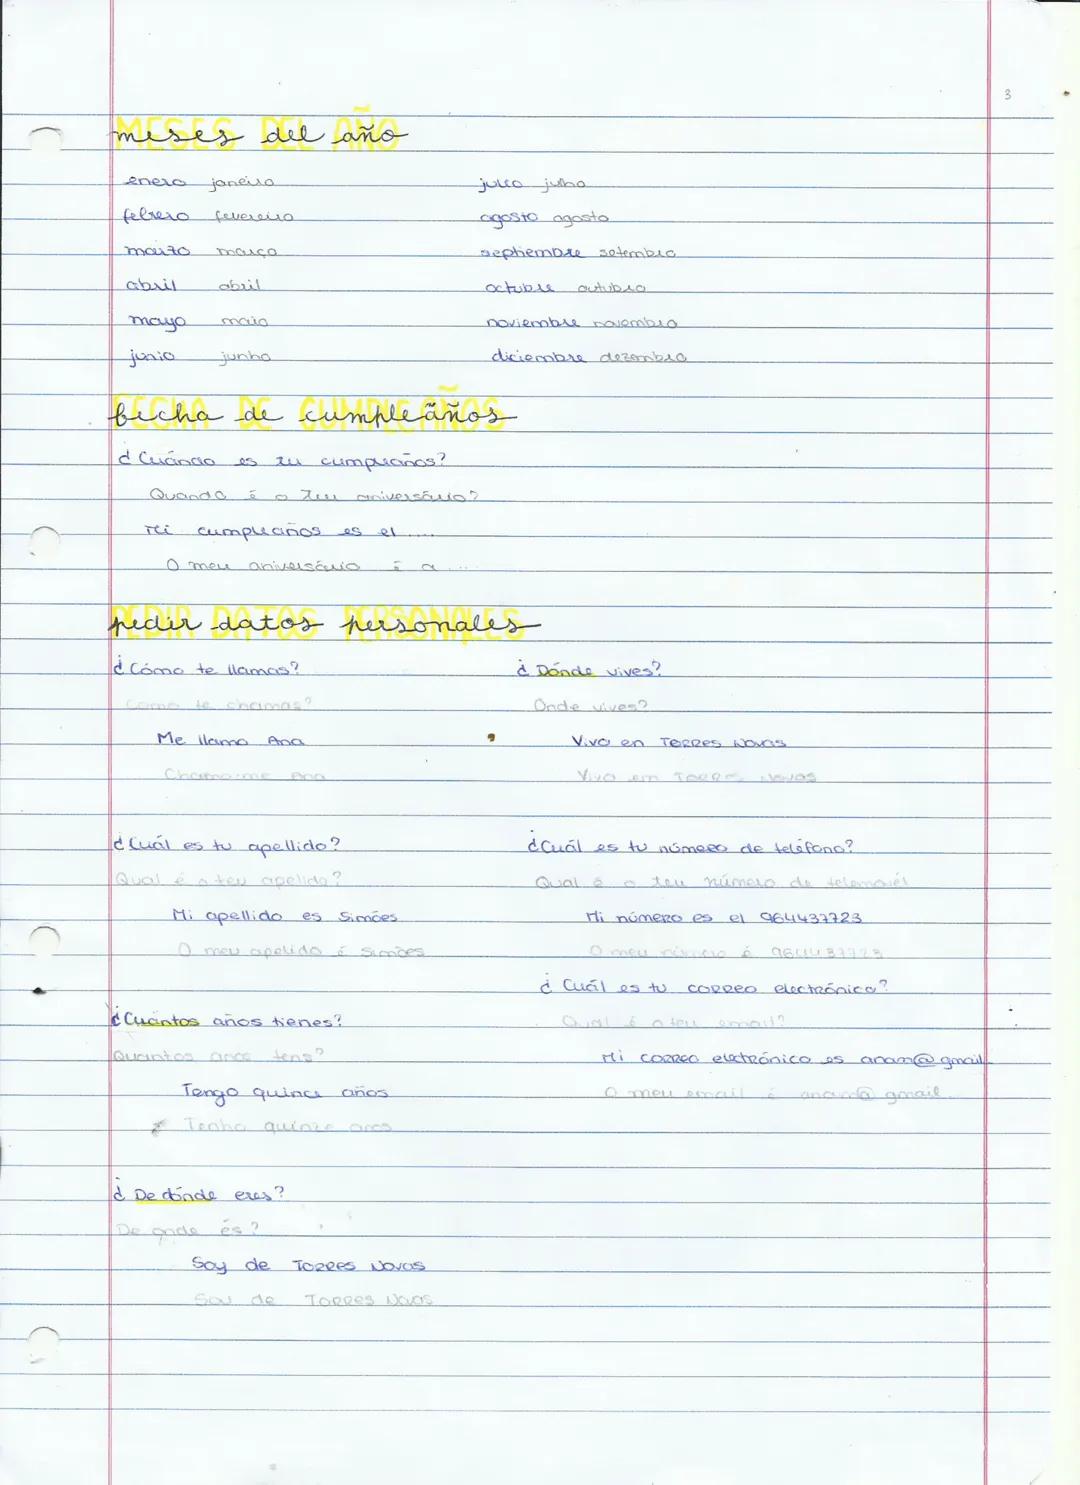 3
meses del año
enero janeiro
febrero fevereiro
marzo março
abril abril
mayo maio
junio junho
julio julho
agosto agosto
septiembre setembro
octubre outubro
noviembre novembro
diciembre dezembro
fecha de cumpleaños
¿Cuándo es tu cumpleaños?
Quando é o teu aniversário?
Mi cumpleaños es el ....
O meu aniversário é a ....
pedir datos personales
¿Cómo te llamas?
Como te chamas?
Me llamo Ana
Chamo-me Ana
¿Cuál es tu apellido?
Qual é o teu apelido?
Mi apellido es Simões
O meu apelido é Simões
¿Cuántos años tienes?
Quantos anos tens?
Tengo quince años
Tenho quinze anos
¿De dónde eres?
De onde és?
Soy de Torres Novas
Sou de Torres Novas
¿Dónde vives?
Onde vives?
Vivo en Torres Novas
Vivo em Torres Novas
¿Cuál es tu número de teléfono?
Qual é o teu número de telemovél
Mi número es el 964437723
O meu número é 964437723
¿Cuál es tu correo electrónico?
Qual é o teu email?
Mi correo electrónico es anam@gmail
O meu email é anam@gmail..